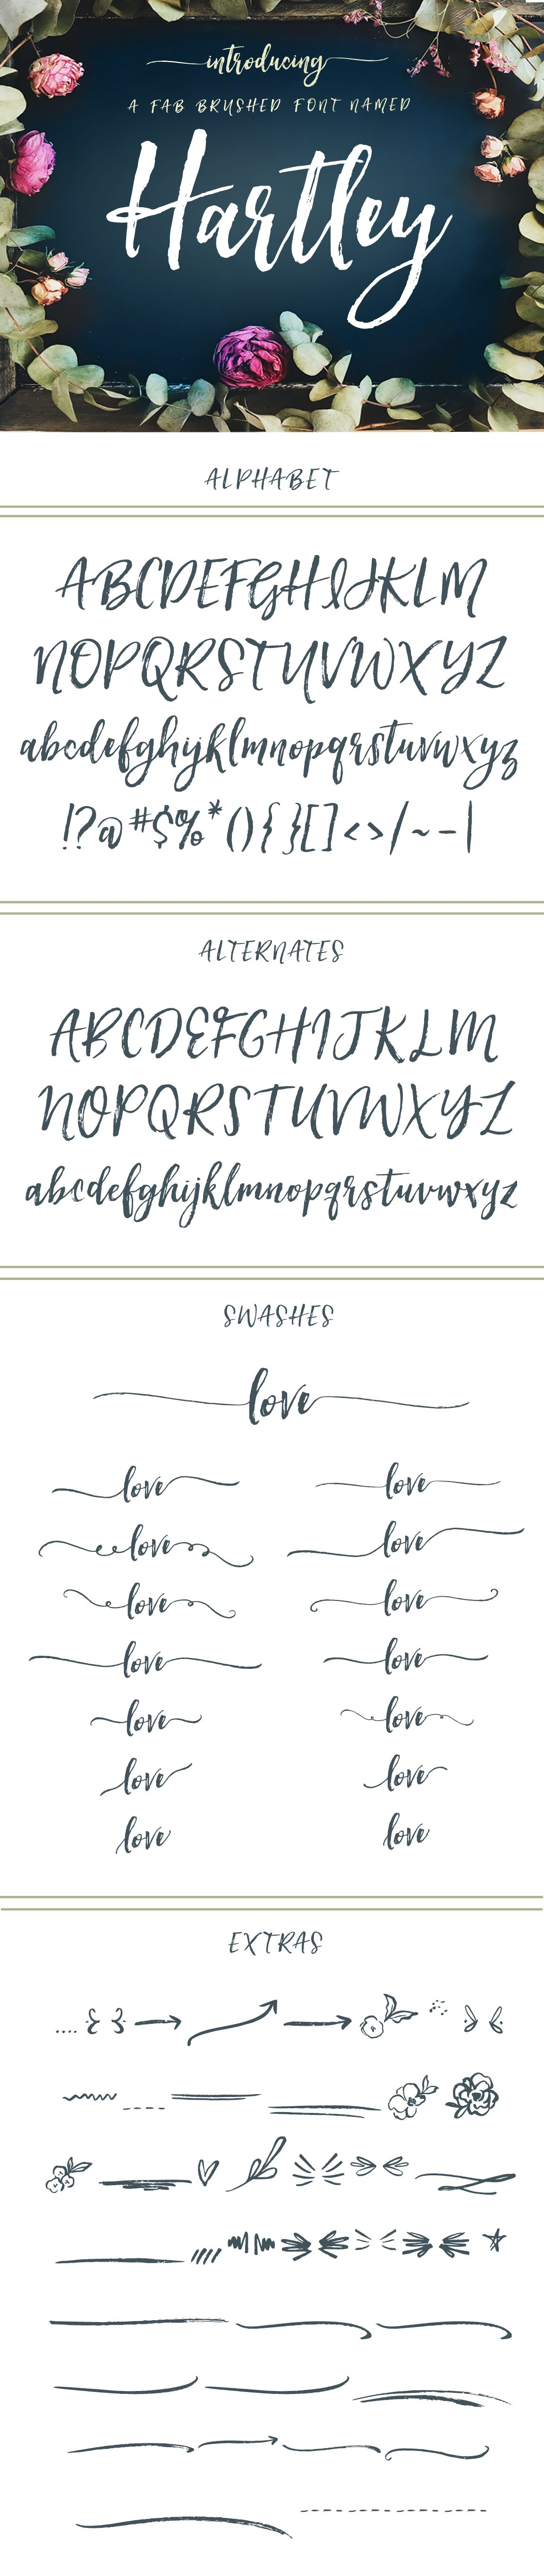 introducing
A FAB BRUSHED FONT NAMED
Hartley
ALPHABET
ABCDEFGHIJKLM
NOPQRSTUVWXYZ
abcdefghijklmnopqrstuvwxyz
!?@#$%*(){}[]<>/~-|
ALTERNATES
ABCDEFGHIJKLM
NOPQRSTUVWXYZ
abcdefghijklmnopqrstuvwxyz
SWASHES
love
love love
love love
love love
love love
love love
love love
love love
EXTRAS